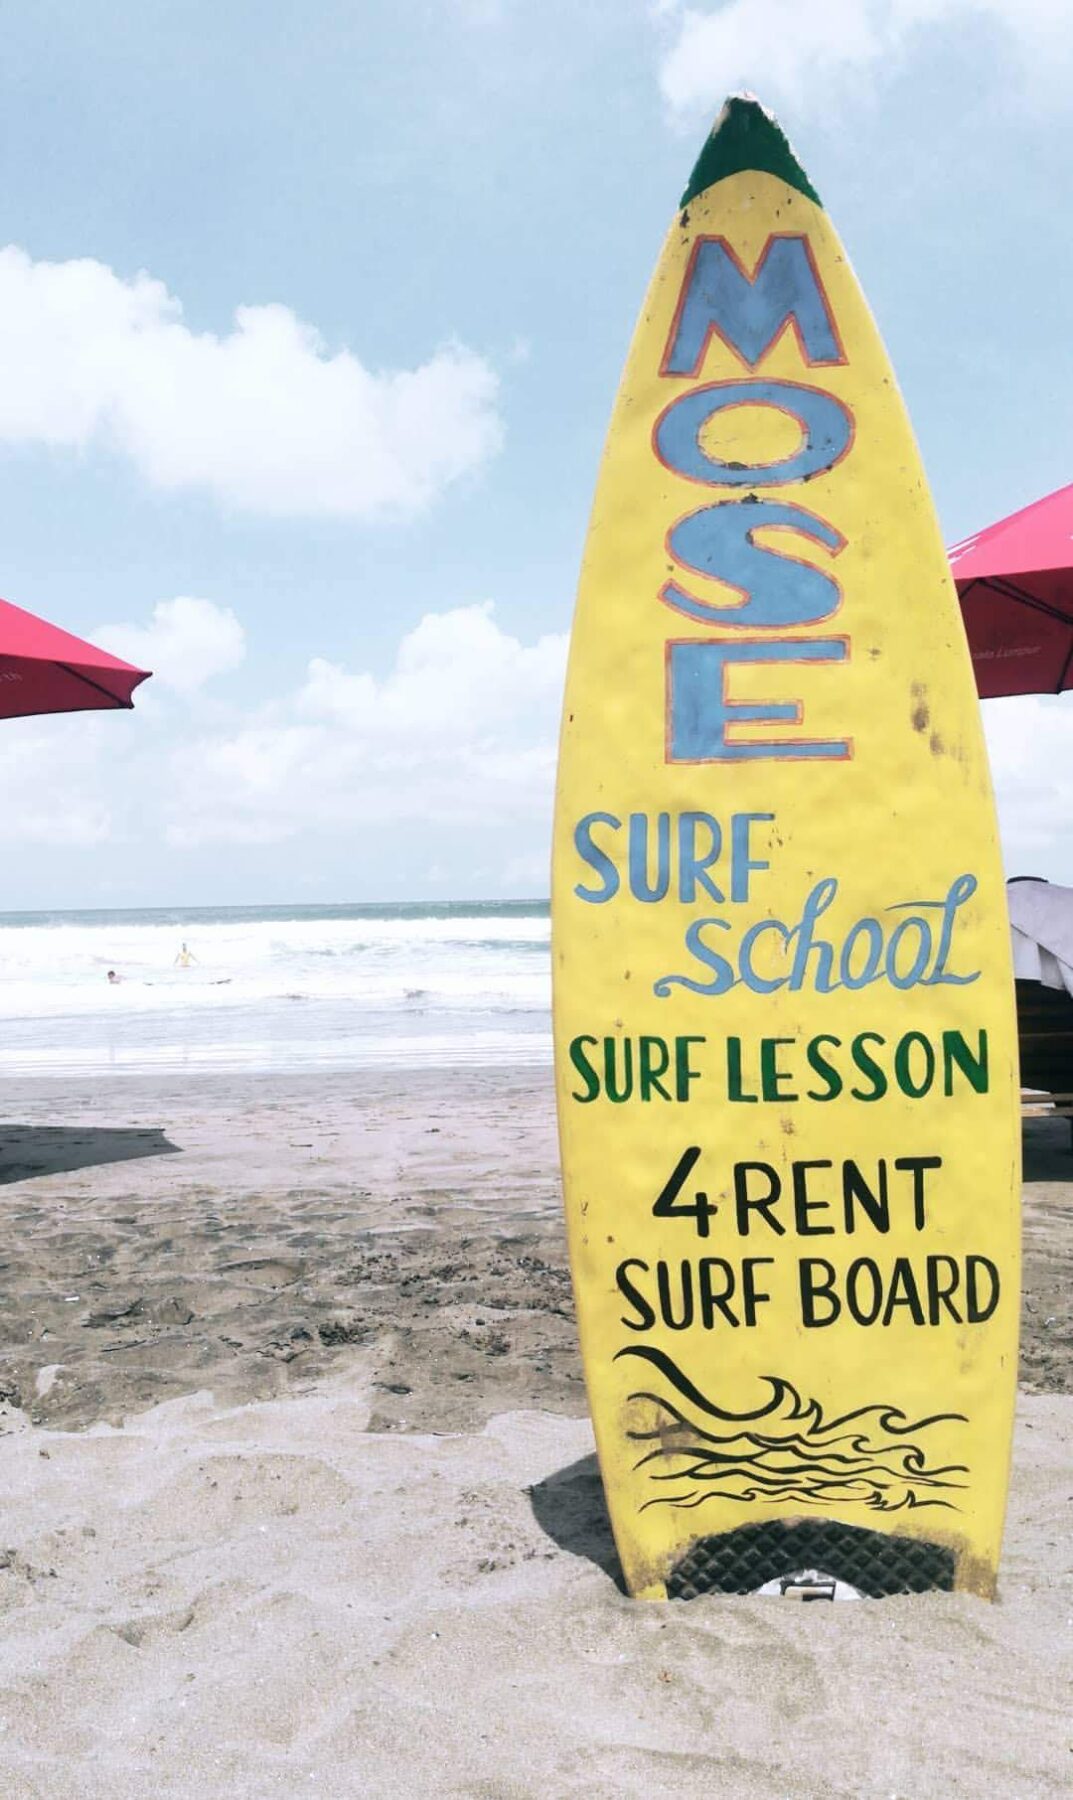 MOSE
SURF
School
SURF LESSON
4 RENT
SURF BOARD
Lumpur